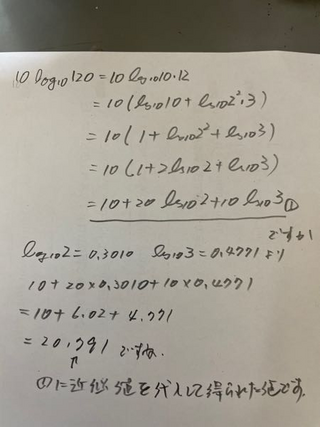 10 log₁₀120 = 10 log₁₀10·12
= 10 ( log₁₀10 + log₁₀2²·3 )
= 10 ( 1 + log₁₀2² + log₁₀3 )
= 10 ( 1 + 2log₁₀2 + log₁₀3 )
= 10 + 20 log₁₀2 + 10 log₁₀3 ①
ですから
log₁₀2 = 0,3010 log₁₀3 = 0,4771 より
10 + 20 × 0,3010 + 10 × 0,4771
= 10 + 6.02 + 4.771
= 20.791 ですね.
↑
①に近似値を代入して得られた値です。